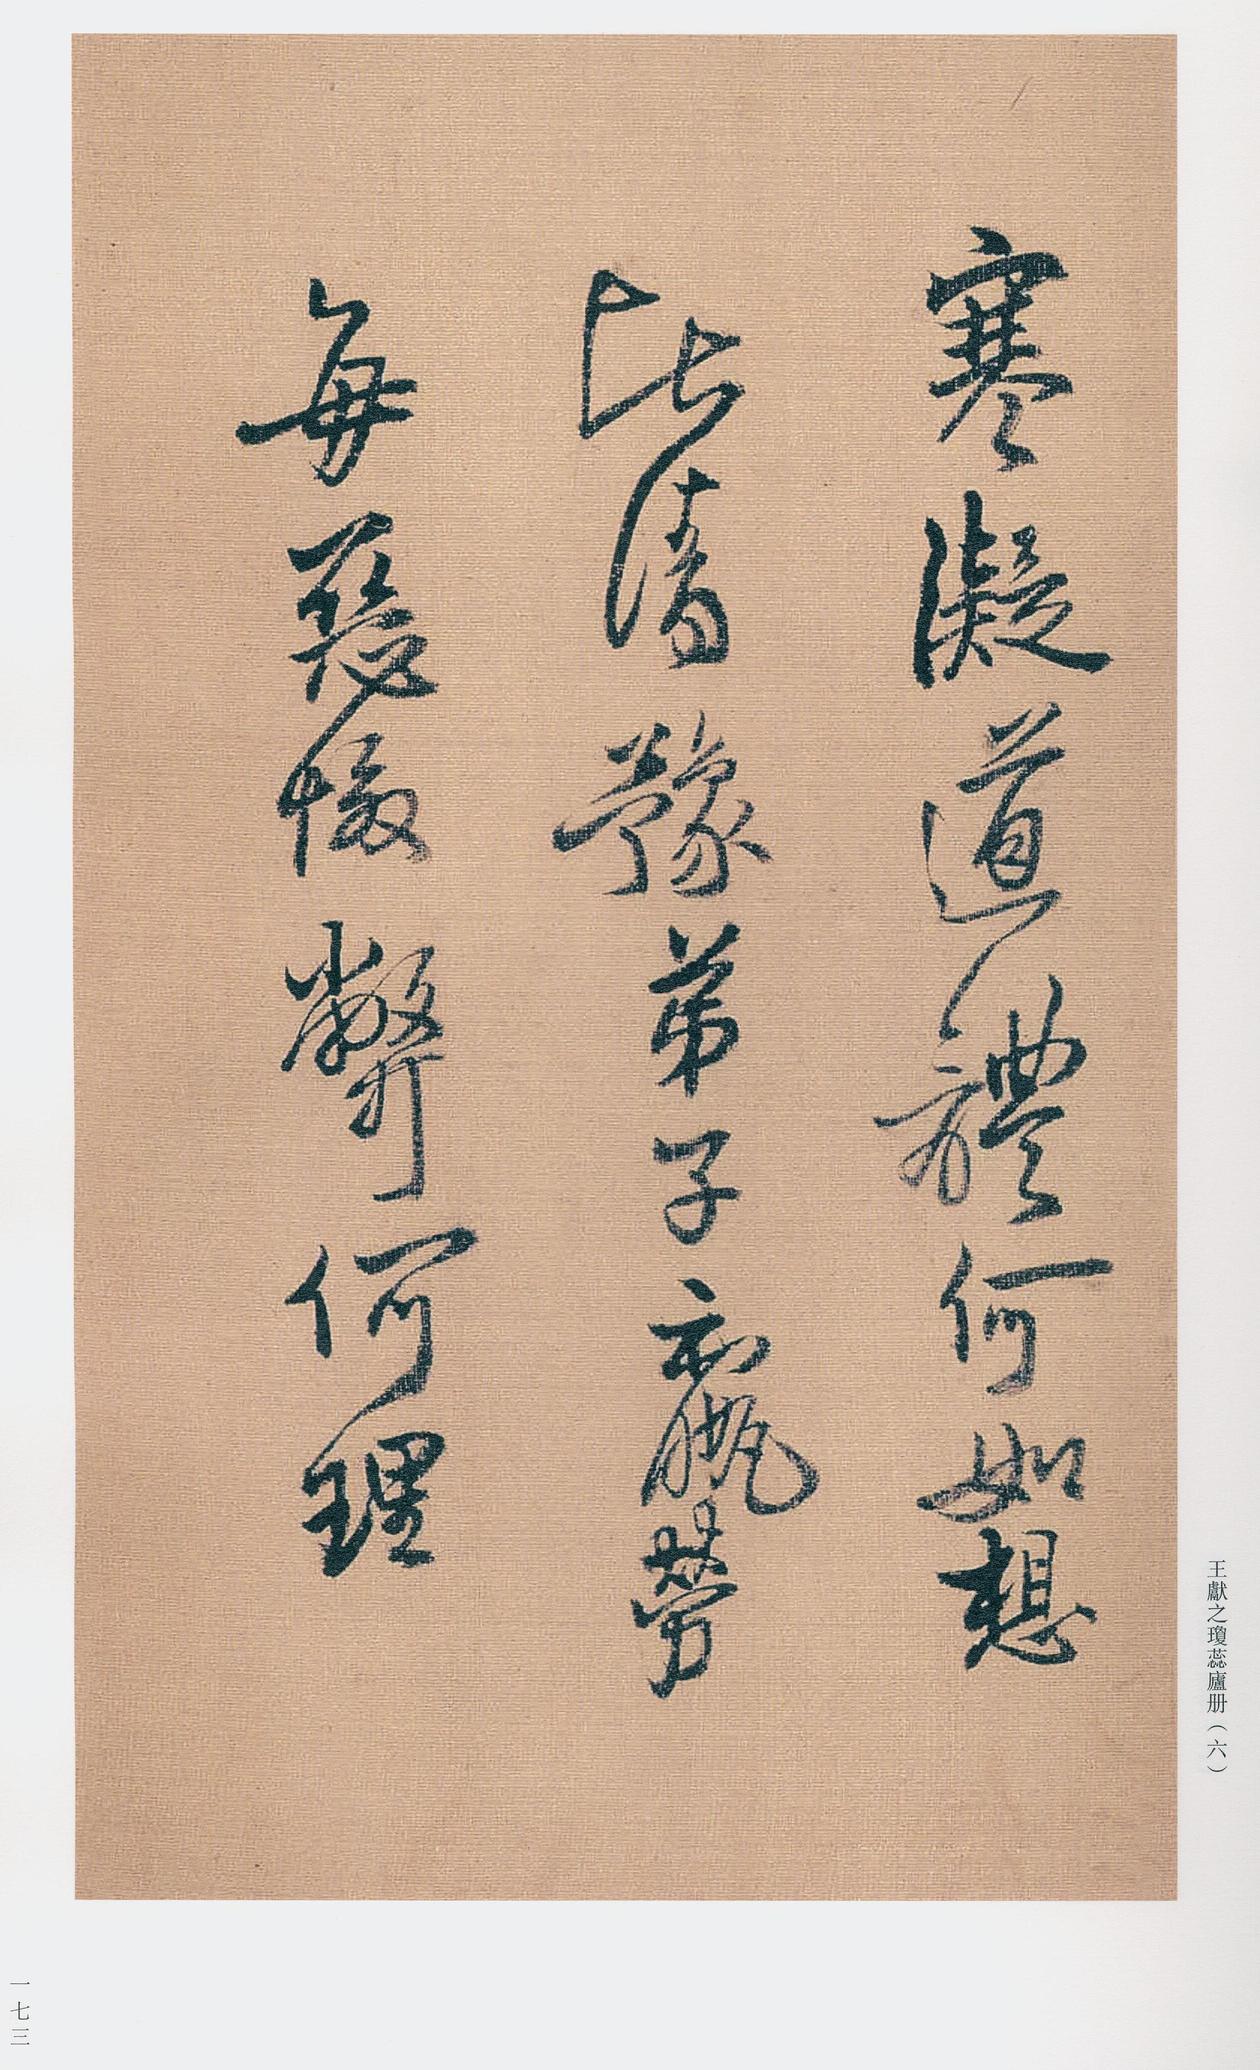 寒凝道體何如想
比清豫弟子羸勞
每慈愍弊何理
王獻之瓊蕊廬册（六）
一七三